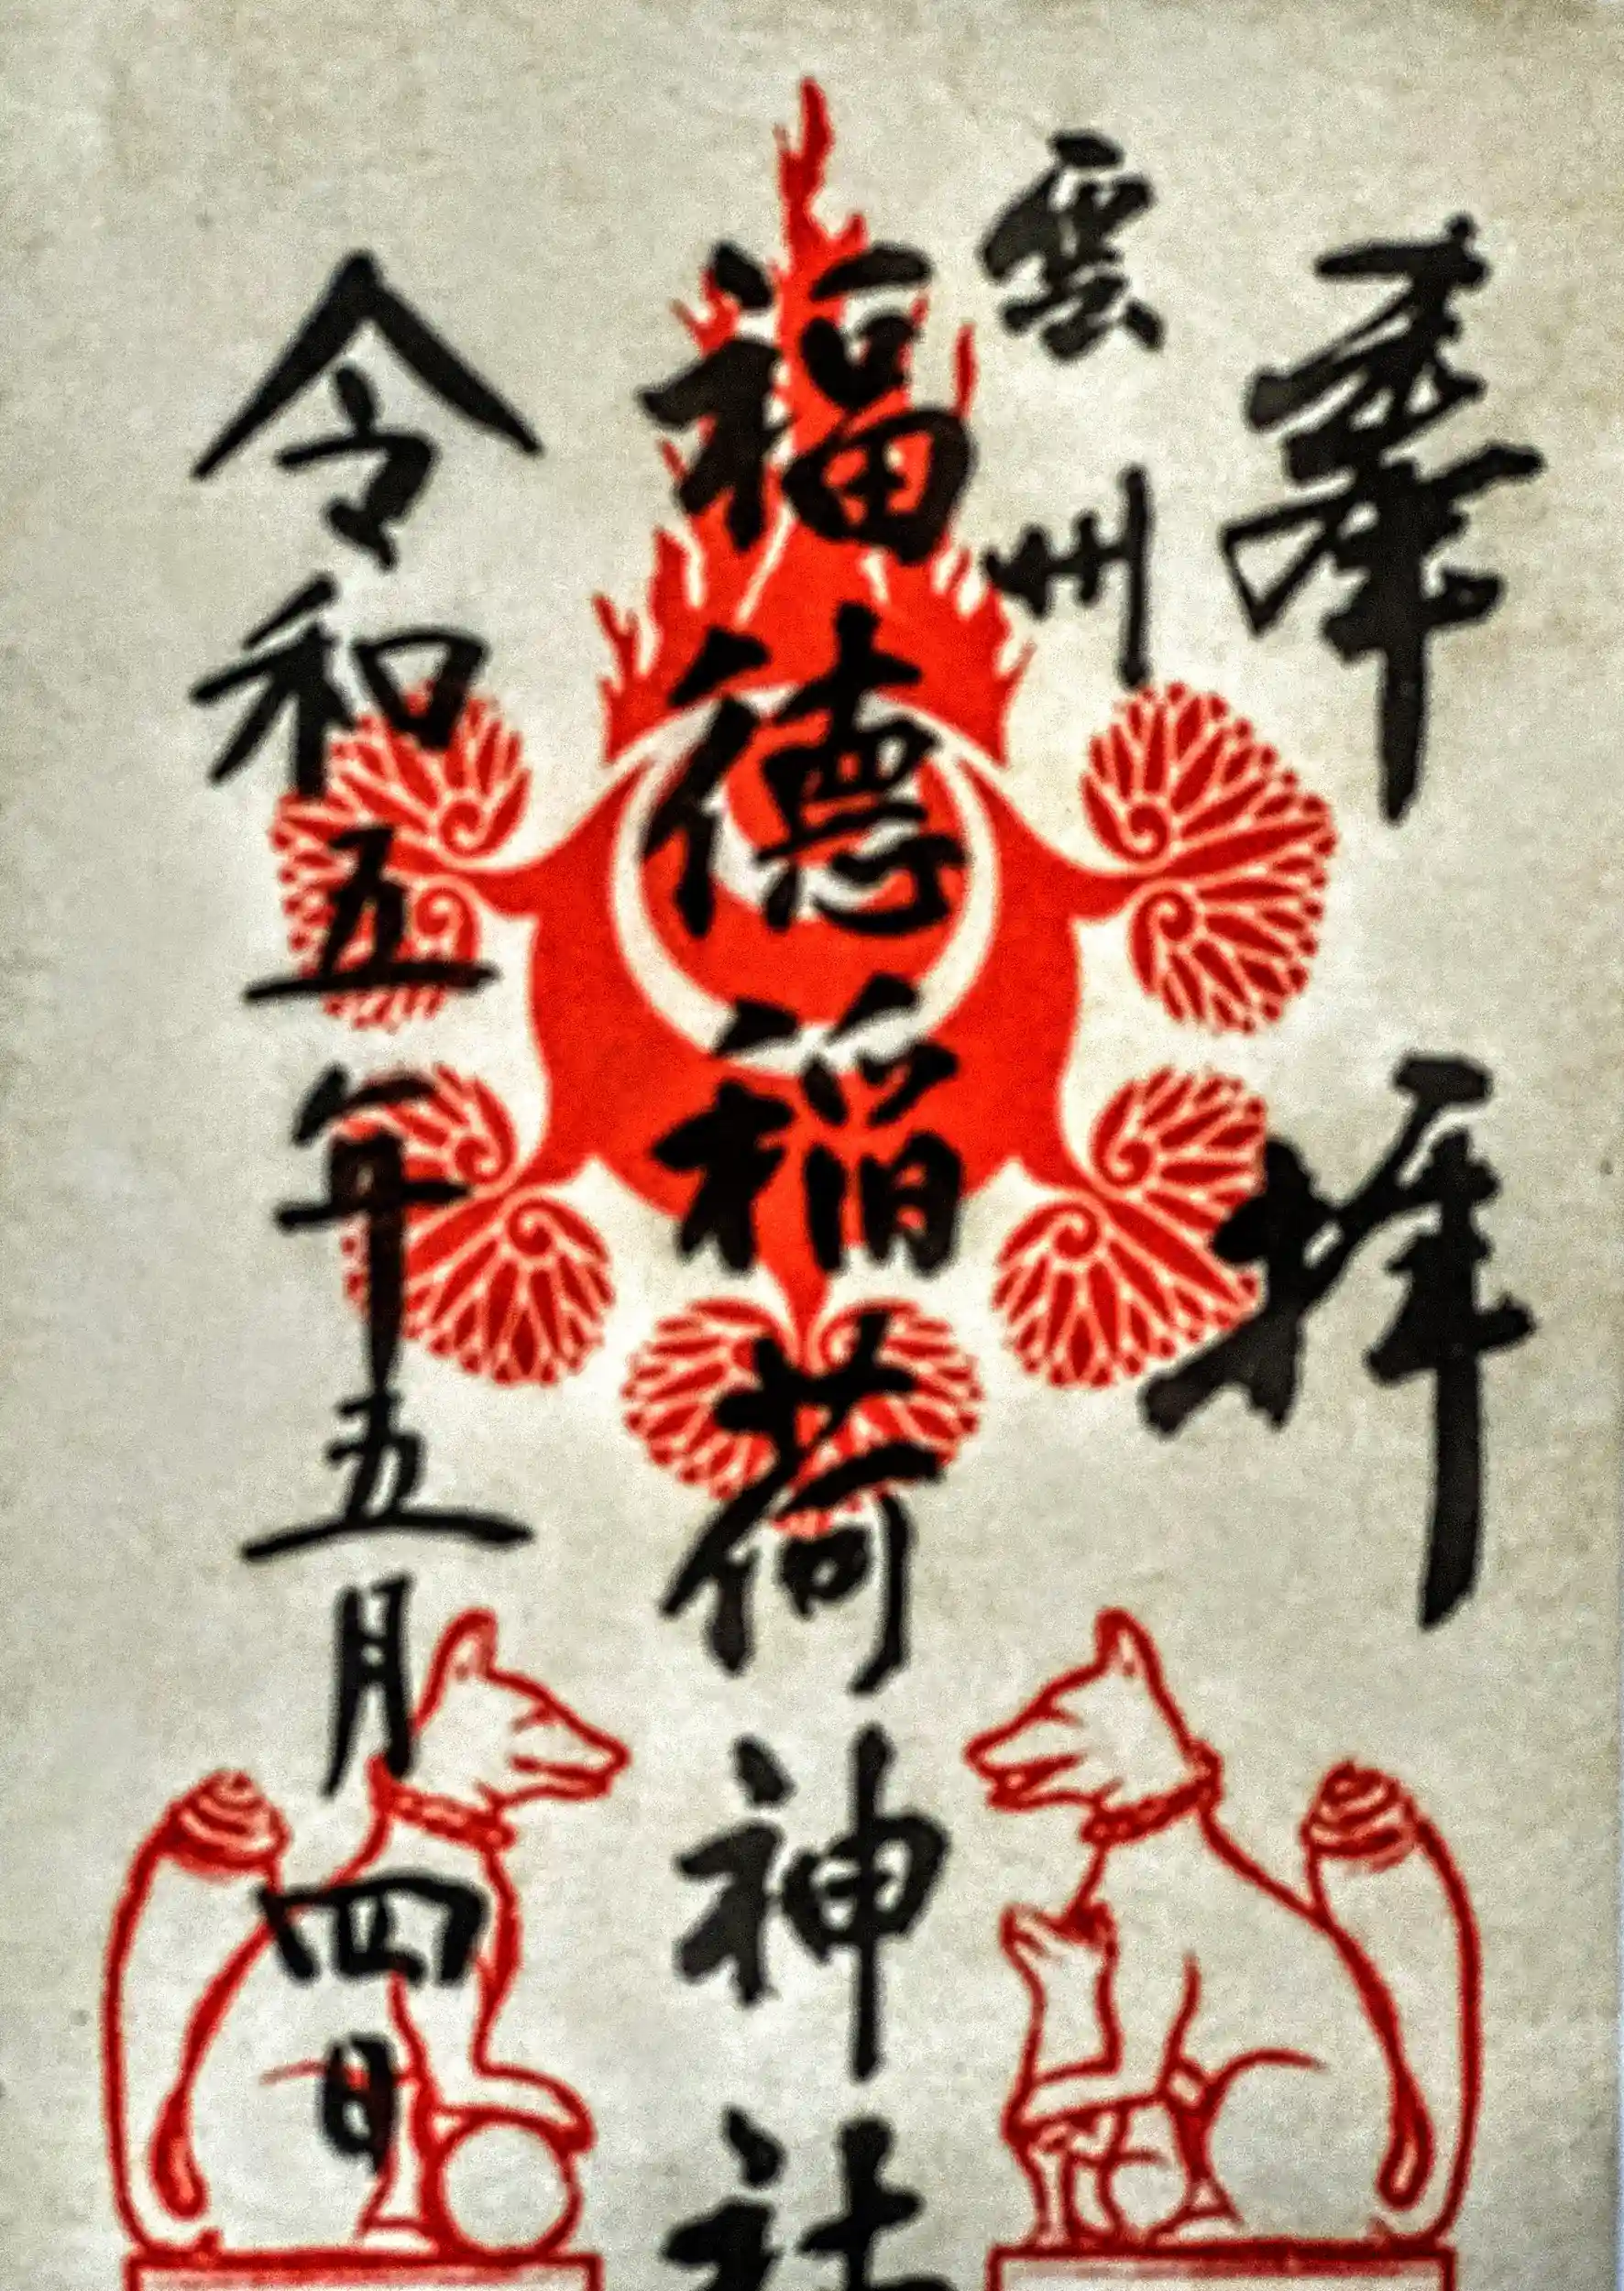 奉拝
雲州
福徳稲荷神社
令和五年五月四日